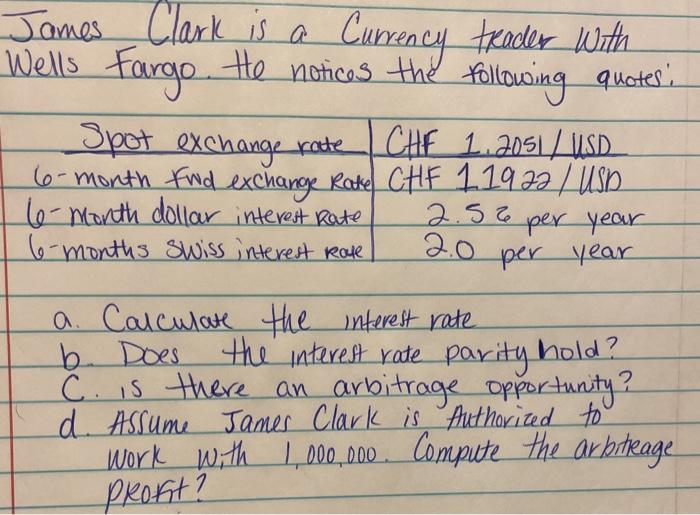 James Clark is a Currency trader With
Wells Fargo. He notices the following quotes:
Spot exchange rate CHF 1.2051 / USD
6-month fwd exchange Rate CHF 1.1922 / USD
6-month dollar interest Rate 2.5% per year
6-months Swiss interest rate 2.0 per year
a. Calculate the interest rate
b. Does the interest rate parity hold?
C. is there an arbitrage opportunity?
d. Assume James Clark is Authorized to
work With 1,000,000. Compute the arbitrage
profit?